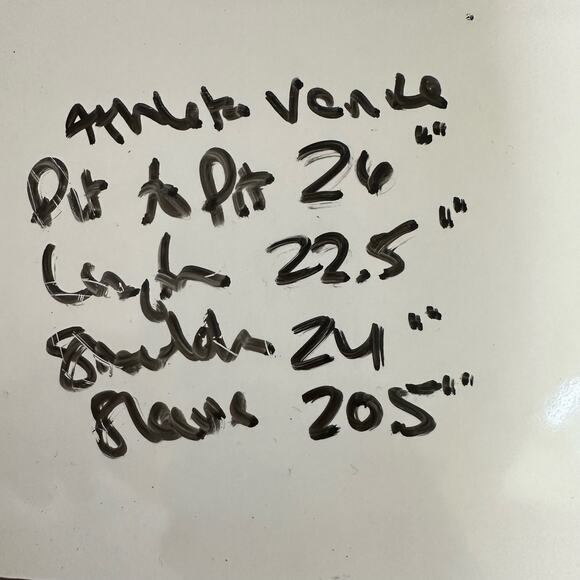 Pit to Pit 26"
Length 22.5"
Shoulder 24"
Sleeve 205"